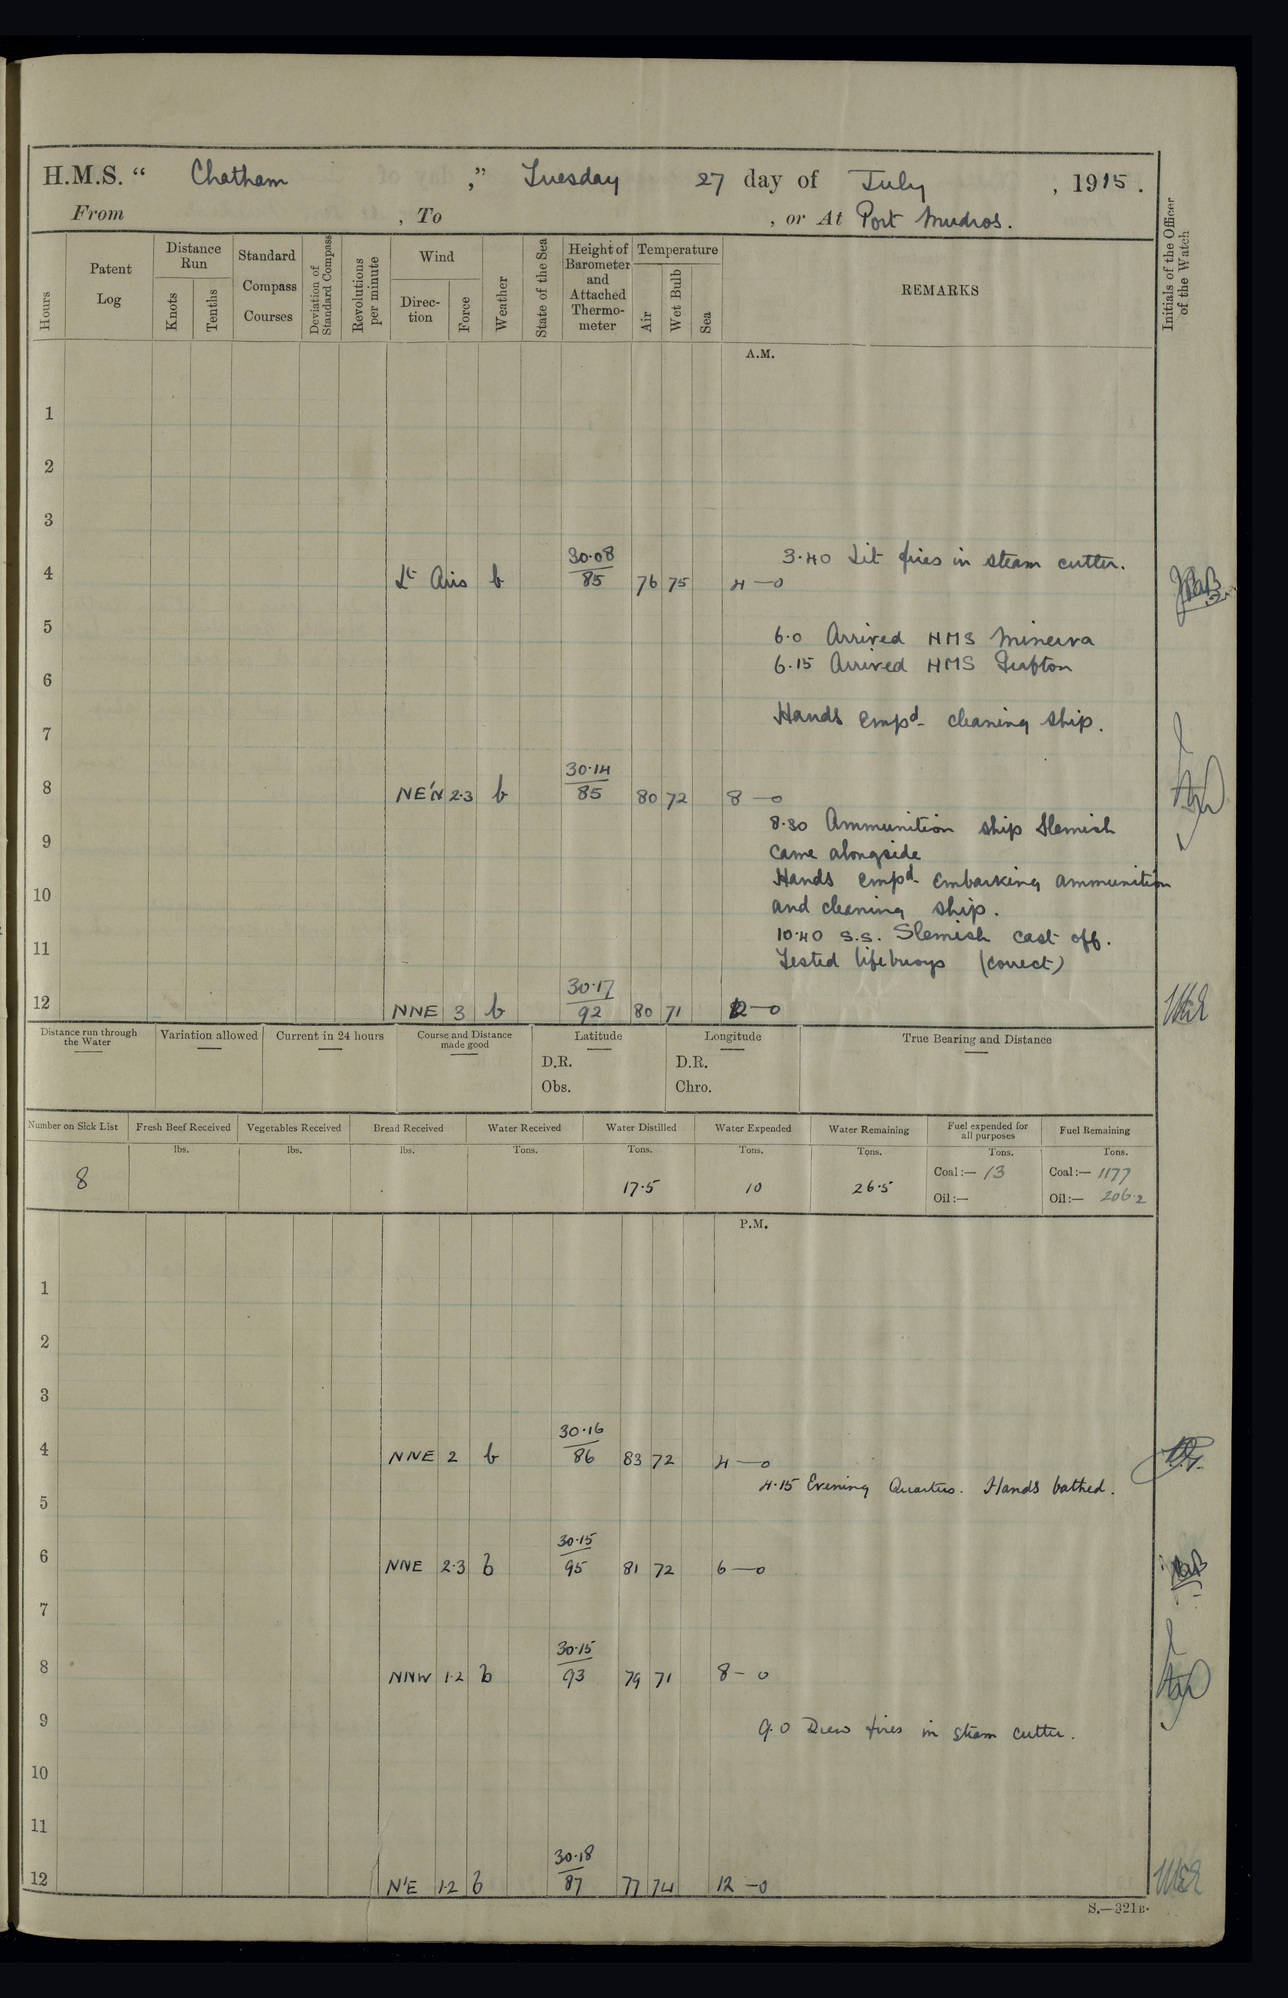 H.M.S. “ Chatham ,” Tuesday 27 day of July , 1915.
From , To , or At Port Mudros.
Hours
Patent Log
Distance Run
Knots
Tenths
Standard Compass Courses
Deviation of Standard Compass
Revolutions per minute
Wind
Direction
Force
Weather
State of the Sea
Height of Barometer and Attached Thermometer
Temperature
Air
Wet Bulb
Sea
REMARKS
Initials of the Officer of the Watch
A.M.
1
2
3
3.40 Lit fires in steam cutter.
4 Lt Airs b 30.08/85 76 75 4—0
5
6.0 Arrived HMS Minerva
6.15 Arrived HMS Grafton
6
Hands empd cleaning ship.
7
8 NE'N 2.3 b 30.14/85 80 72 8—0
8.30 Ammunition ship Slemish
9
came alongside
Hands empd embarking ammunition
10
and cleaning ship.
10.40 S.S. Slemish cast off.
11
Tested lifebuoys (correct)
12 NNE 3 b 30.17/92 80 71 12—0
Distance run through the Water
Variation allowed
Current in 24 hours
Course and Distance made good
Latitude
D.R.
Obs.
Longitude
D.R.
Chro.
True Bearing and Distance
Number on Sick List
Fresh Beef Received
Vegetables Received
Bread Received
Water Received
Water Distilled
Water Expended
Water Remaining
Fuel expended for all purposes
Fuel Remaining
lbs. lbs. lbs. Tons. Tons. Tons. Tons. Tons. Tons.
8 17.5 10 26.5 Coal:— 13 Coal:— 1177
Oil:— Oil:— 206.2
P.M.
1
2
3
4 NNE 2 b 30.16/86 83 72 4—0
4.15 Evening Quarters. Hands bathed.
5
6 NNE 2.3 b 30.15/95 81 72 6—0
7
8 NNW 1.2 b 30.15/93 79 71 8-0
9
9.0 Drew fires in steam cutter.
10
11
12 N'E 1.2 b 30.18/87 77 74 12—0
S.—321B.